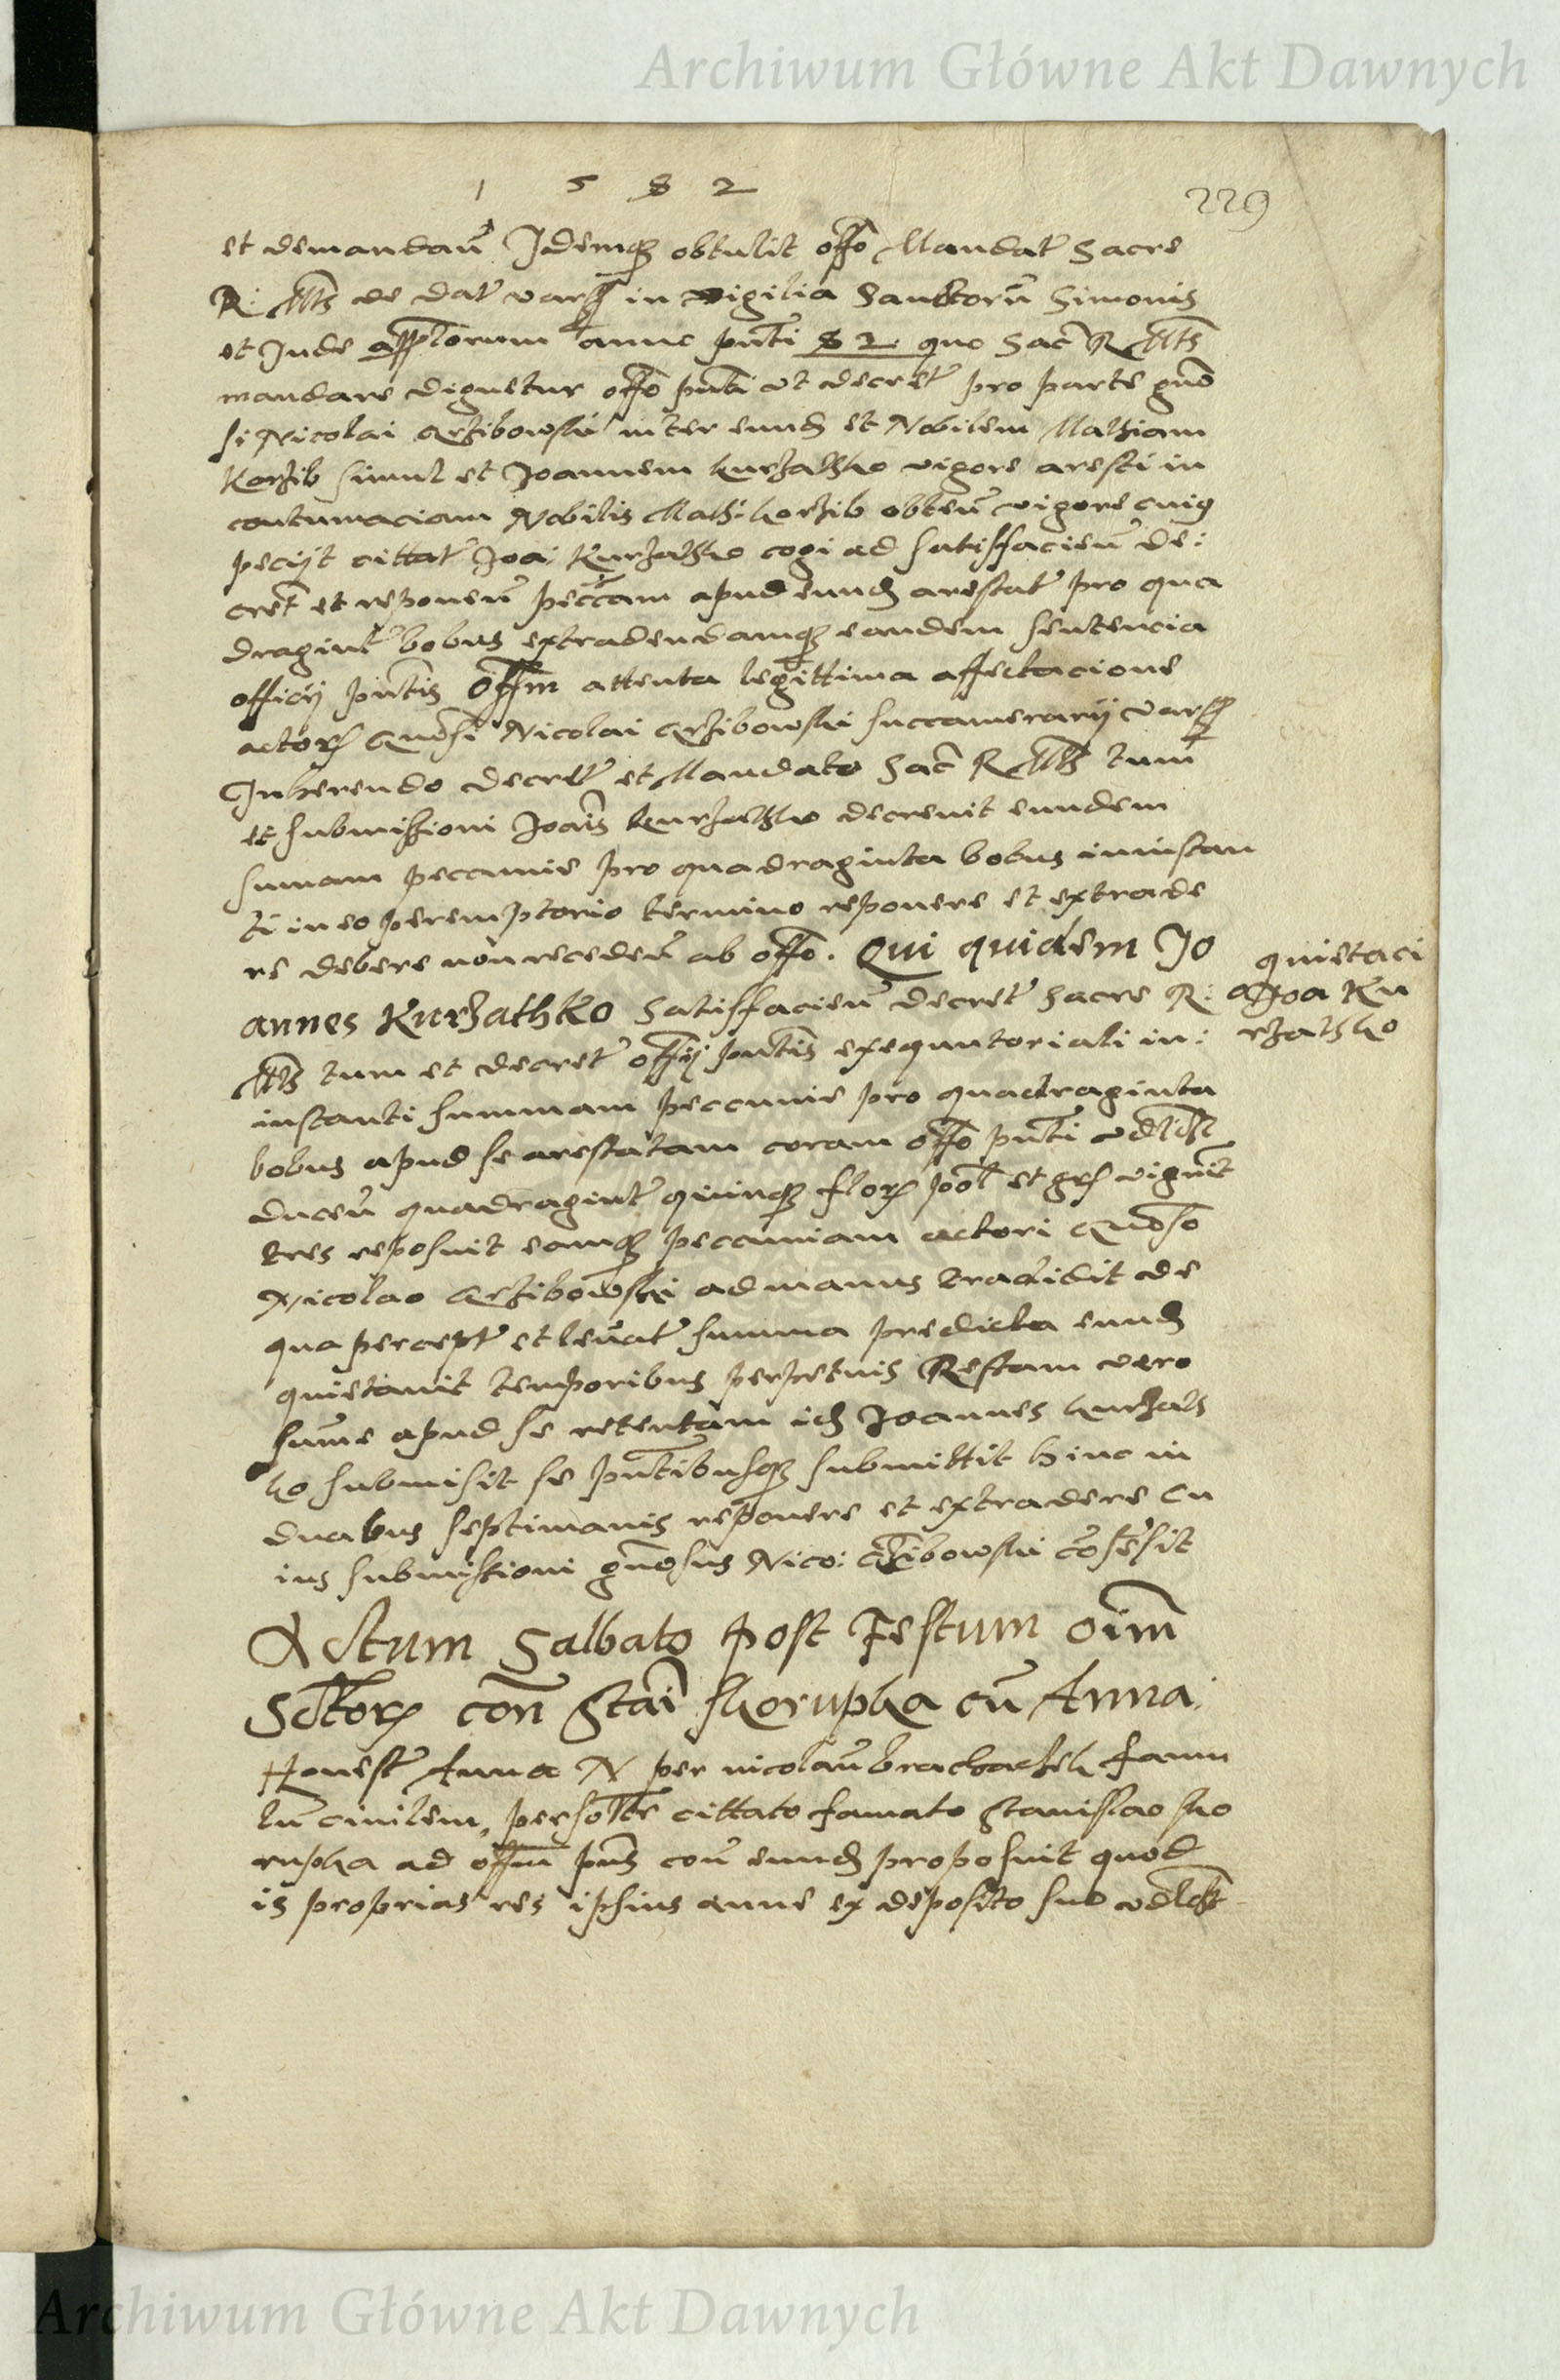 Archiwum Główne Akt Dawnych
1 5 8 2
229
et demandaũ Idemq obtulit offo Mandat Sacre
R: Mtts de dat vars in vigilia Sanctorũ Simonis
et Jude applorum anno pnti 82 quo Sac R Mtts
mandare dignetur offo pnti ut decret pro parte gno
si Nicolai Grzibowski inter eund et Nobilem Mathiam
Korzib simul et Joannem Kurzathko vigore aresti in
contumaciam Nobilis Math: Korzib obten vigore cuig
peciit cittat Joa: Kurzathko cogi ad satisfacien de:
cret et reponen peccam apud eund arestat pro qua
dragint bobus extradendamq eandem sentencia
officij pntis Offm attenta legittima affectacione
actor Gnosi Nicolai Grzibowski succamerarij vars
Inherendo decret et Mandato Sac R Mtts tum
et submissioni Jois Kurzathko decrevit eundem
sumam pecunie pro quadraginta bobus in instan
ti in eo peremptorio termino reponere et extrade
re debere non receden ab offo. Qui quidem Jo
annes Kurzathko satisfacien decret Sacre R:
Mtts tum et decret offij pntis exequutoriali in:
instanti summam peccunie pro quadraginta
bobus apud se arestatam coram offo pnti vdlcst
ducen quadragint quinq flor pol et grs vigint
tres reposuit eamq pecuniam actori Gnoso
Nicolao Grzibowski ad manus tradidit de
qua percept et levat summa predicta eund
quietavit temporibus perpetuis Restam vero
sume apud se retentam id Joannes Kurzath
ko submisit se pntibusq submittit hinc in
duabus septimanis reponere et extradere cu
ius submissioni gnosus Nico: Grzibowski cosesit
quietaci
o Joa Ku
rzathko
Actum Sabbato post Festum oim
Sctor con Stai skorupka cu Anna
Honest Anna N per nicolau brachaczek famu
lu civilem, personlr cittato famato Stanislao sko
rupka ad offm pns con eund proposuit quod
is proprias res ipsius anne ex deposito suo vdlcst
Archiwum Główne Akt Dawnych